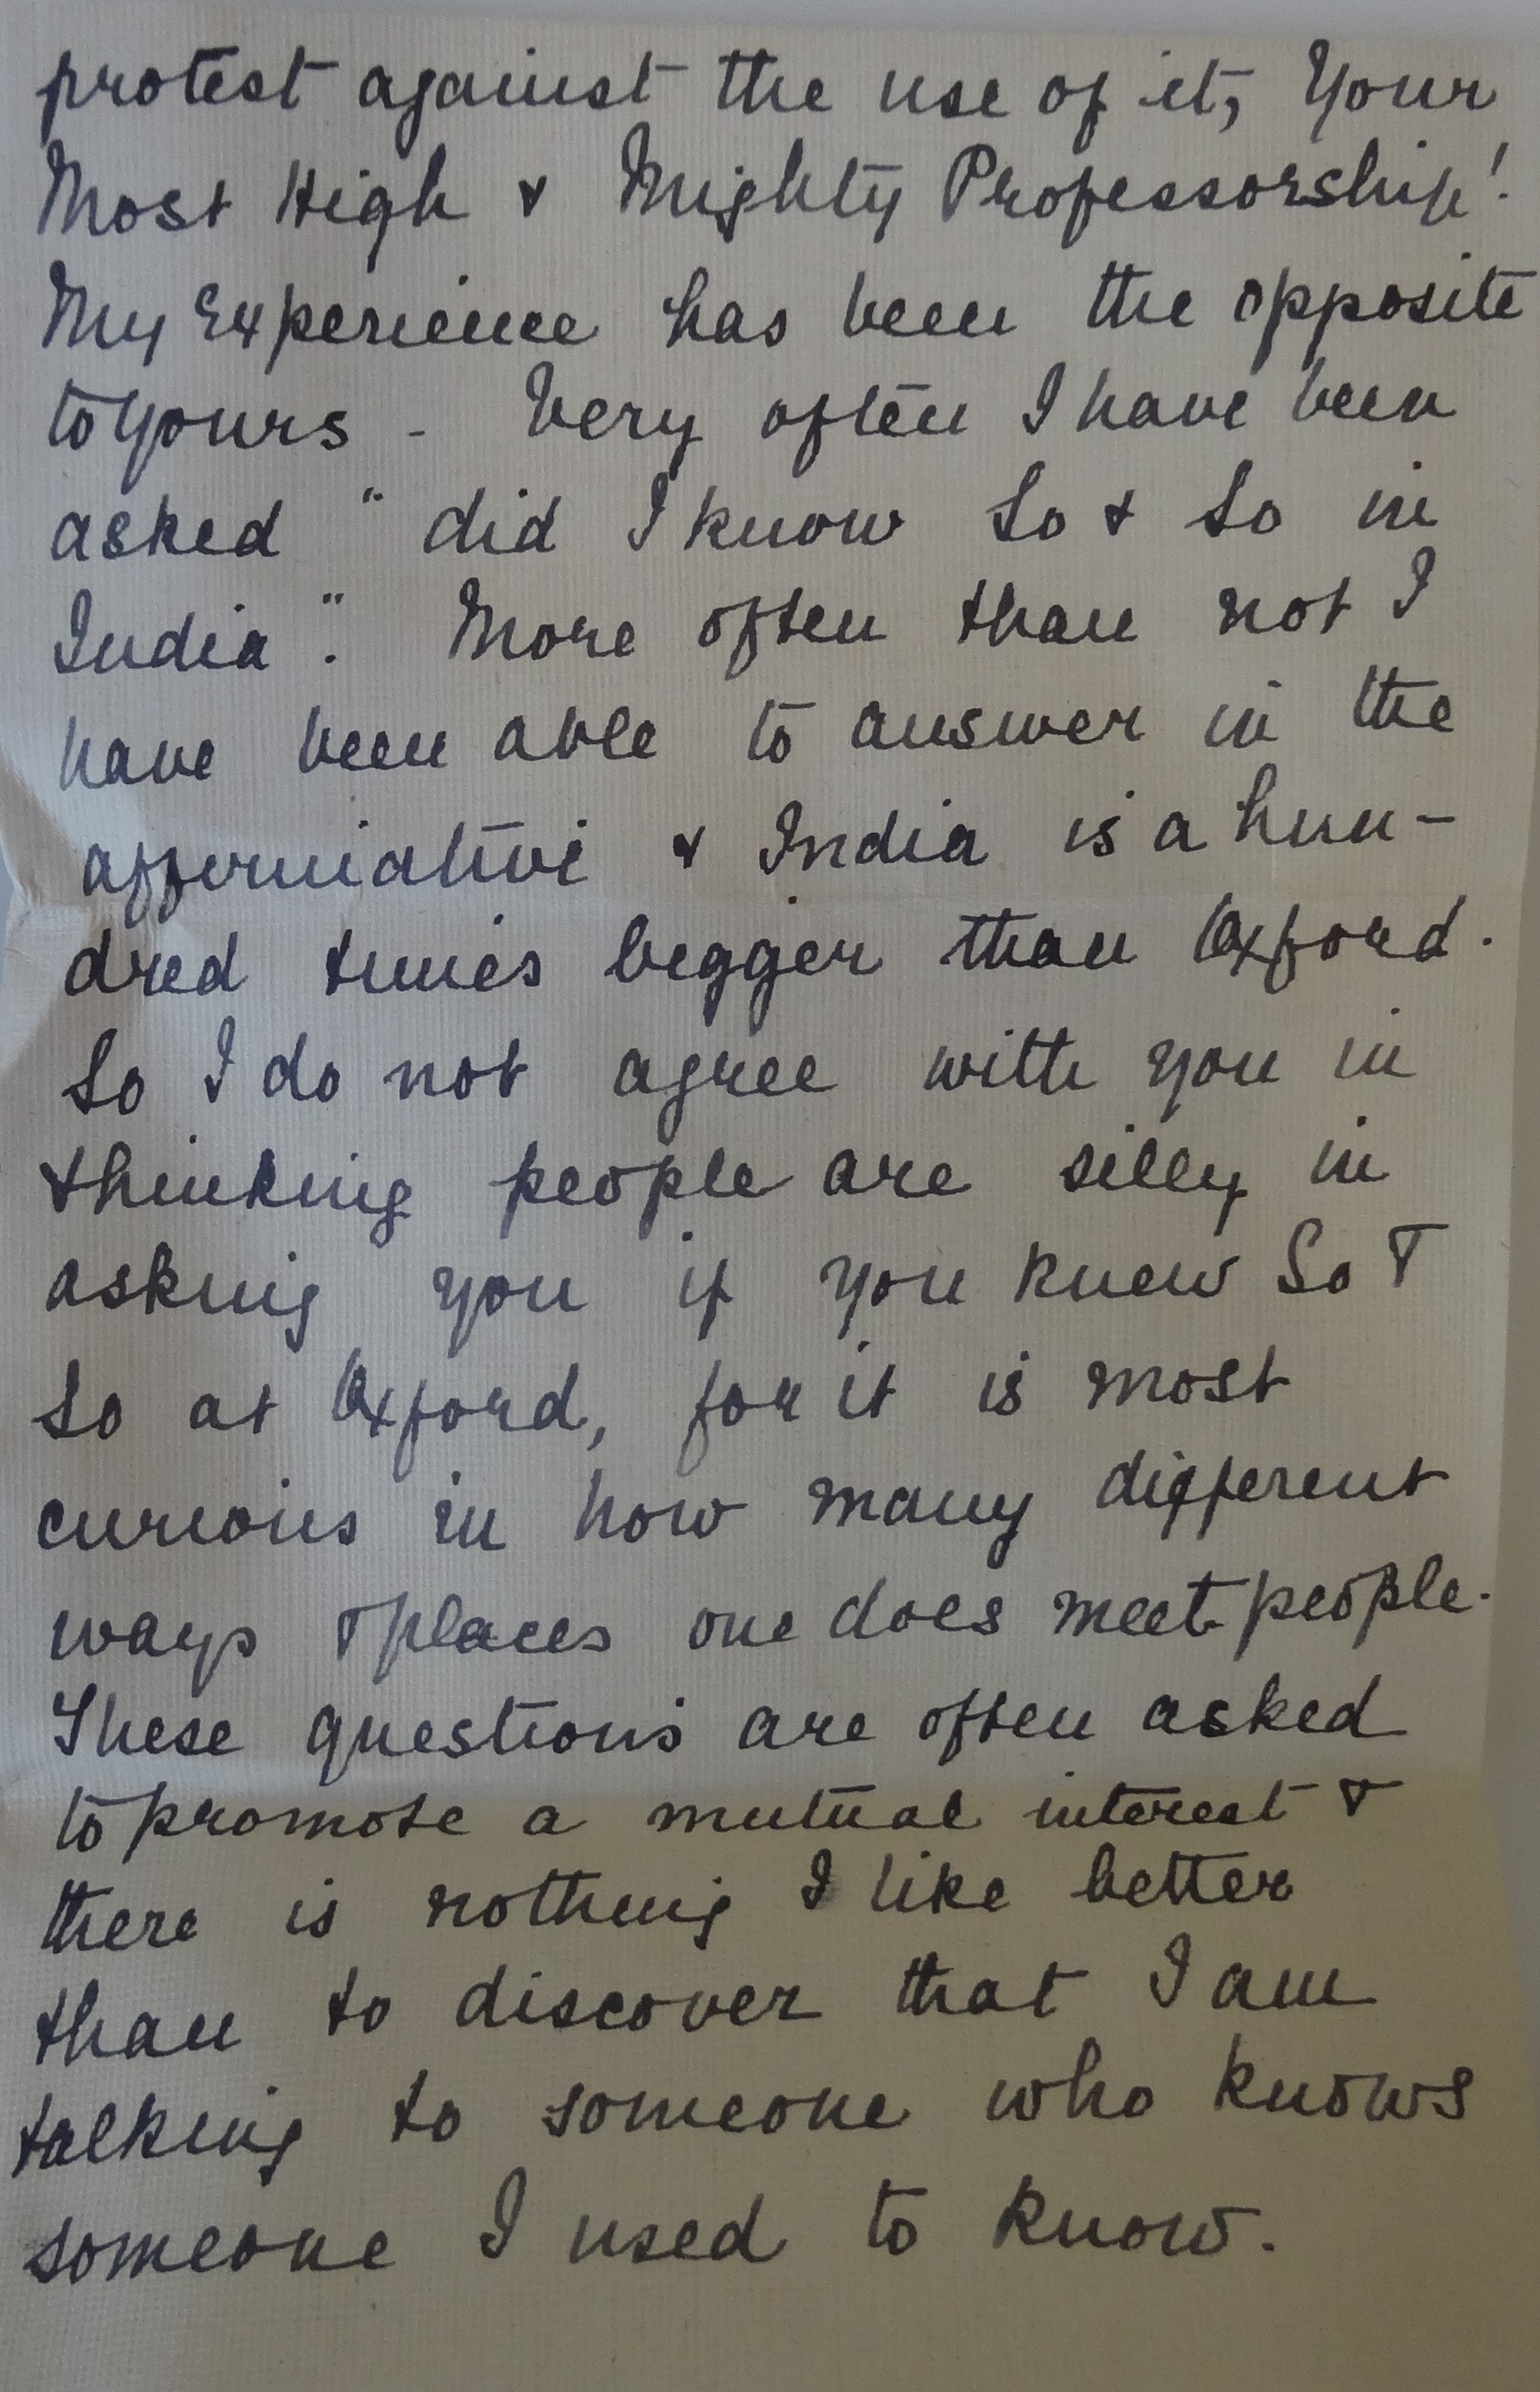 protest against the use of it, Your
Most High & Mighty Professorship!
My Experience has been the opposite
to yours - Very often I have been
asked " did I know So & So in
India". More often than not I
have been able to answer in the
affirmative & India is a hun-
dred times bigger than Oxford.
So I do not agree with you in
thinking people are silly in
asking you if you knew So &
So at Oxford, for it is most
curious in how many different
ways & places one does meet people.
These questions are often asked
to promote a mutual interest &
there is nothing I like better
than to discover that I am
talking to someone who knows
someone I used to know.